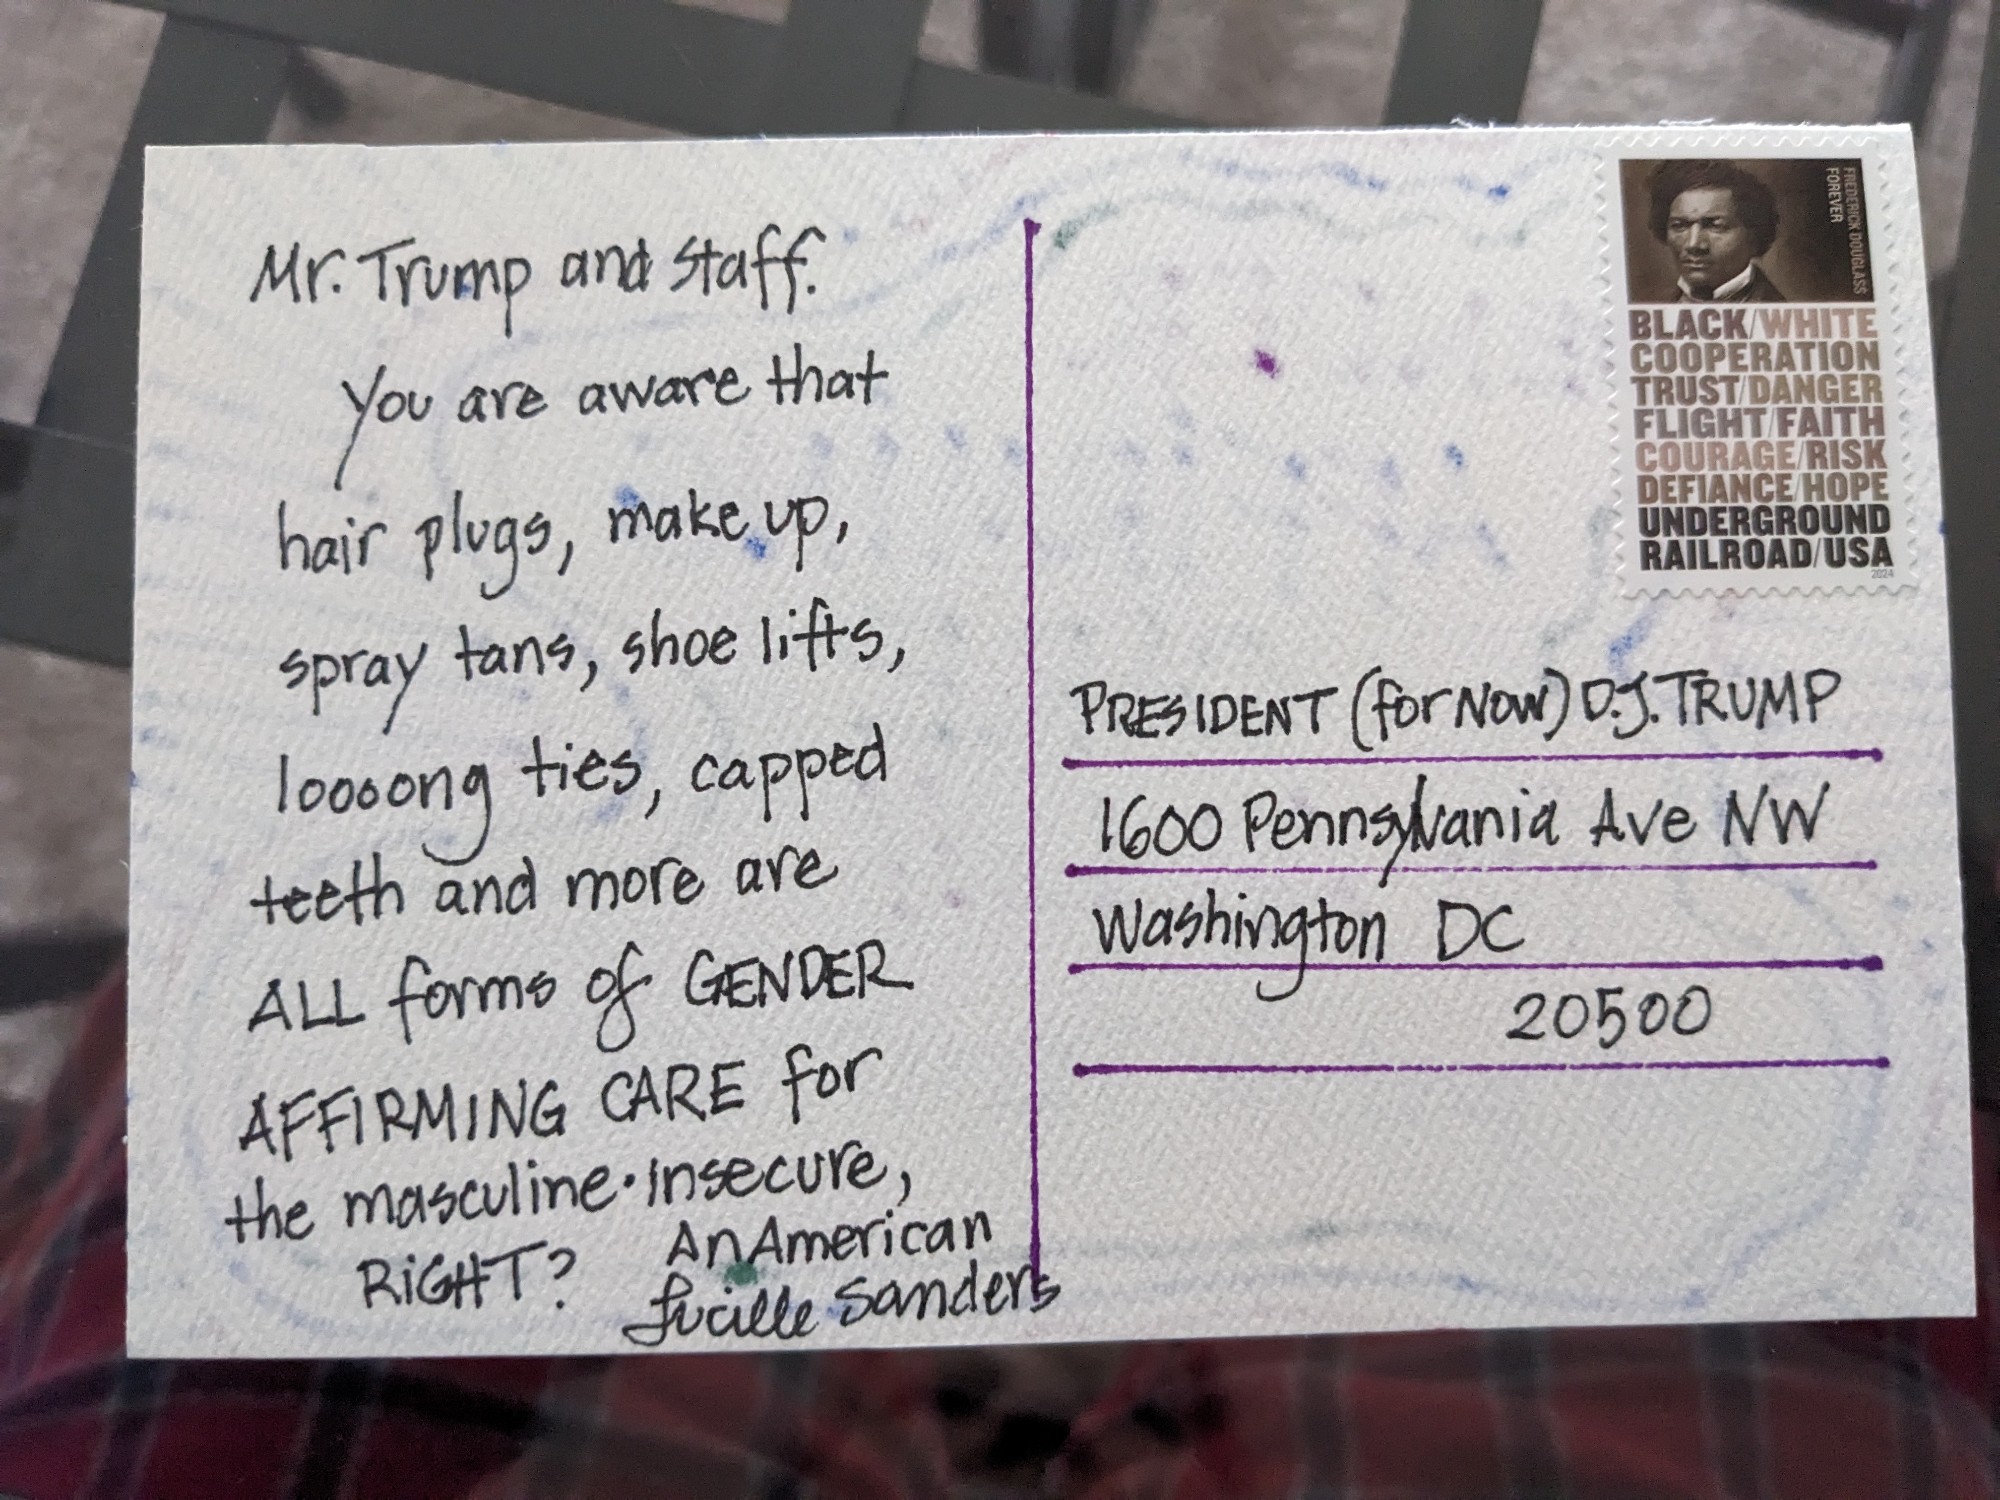 Mr. Trump and staff.
You are aware that
hair plugs, make up,
spray tans, shoe lifts,
loooong ties, capped
teeth and more are
ALL forms of GENDER
AFFIRMING CARE for
the masculine·insecure,
RiGHT?
An American
Lucille Sanders
FREDERICK DOUGLASS
FOREVER
BLACK/WHITE
COOPERATION
TRUST/DANGER
FLIGHT/FAITH
COURAGE/RISK
DEFIANCE/HOPE
UNDERGROUND
RAILROAD/USA
2024
PRESIDENT (for Now) D.J. TRUMP
1600 Pennsylvania Ave NW
Washington DC
20500